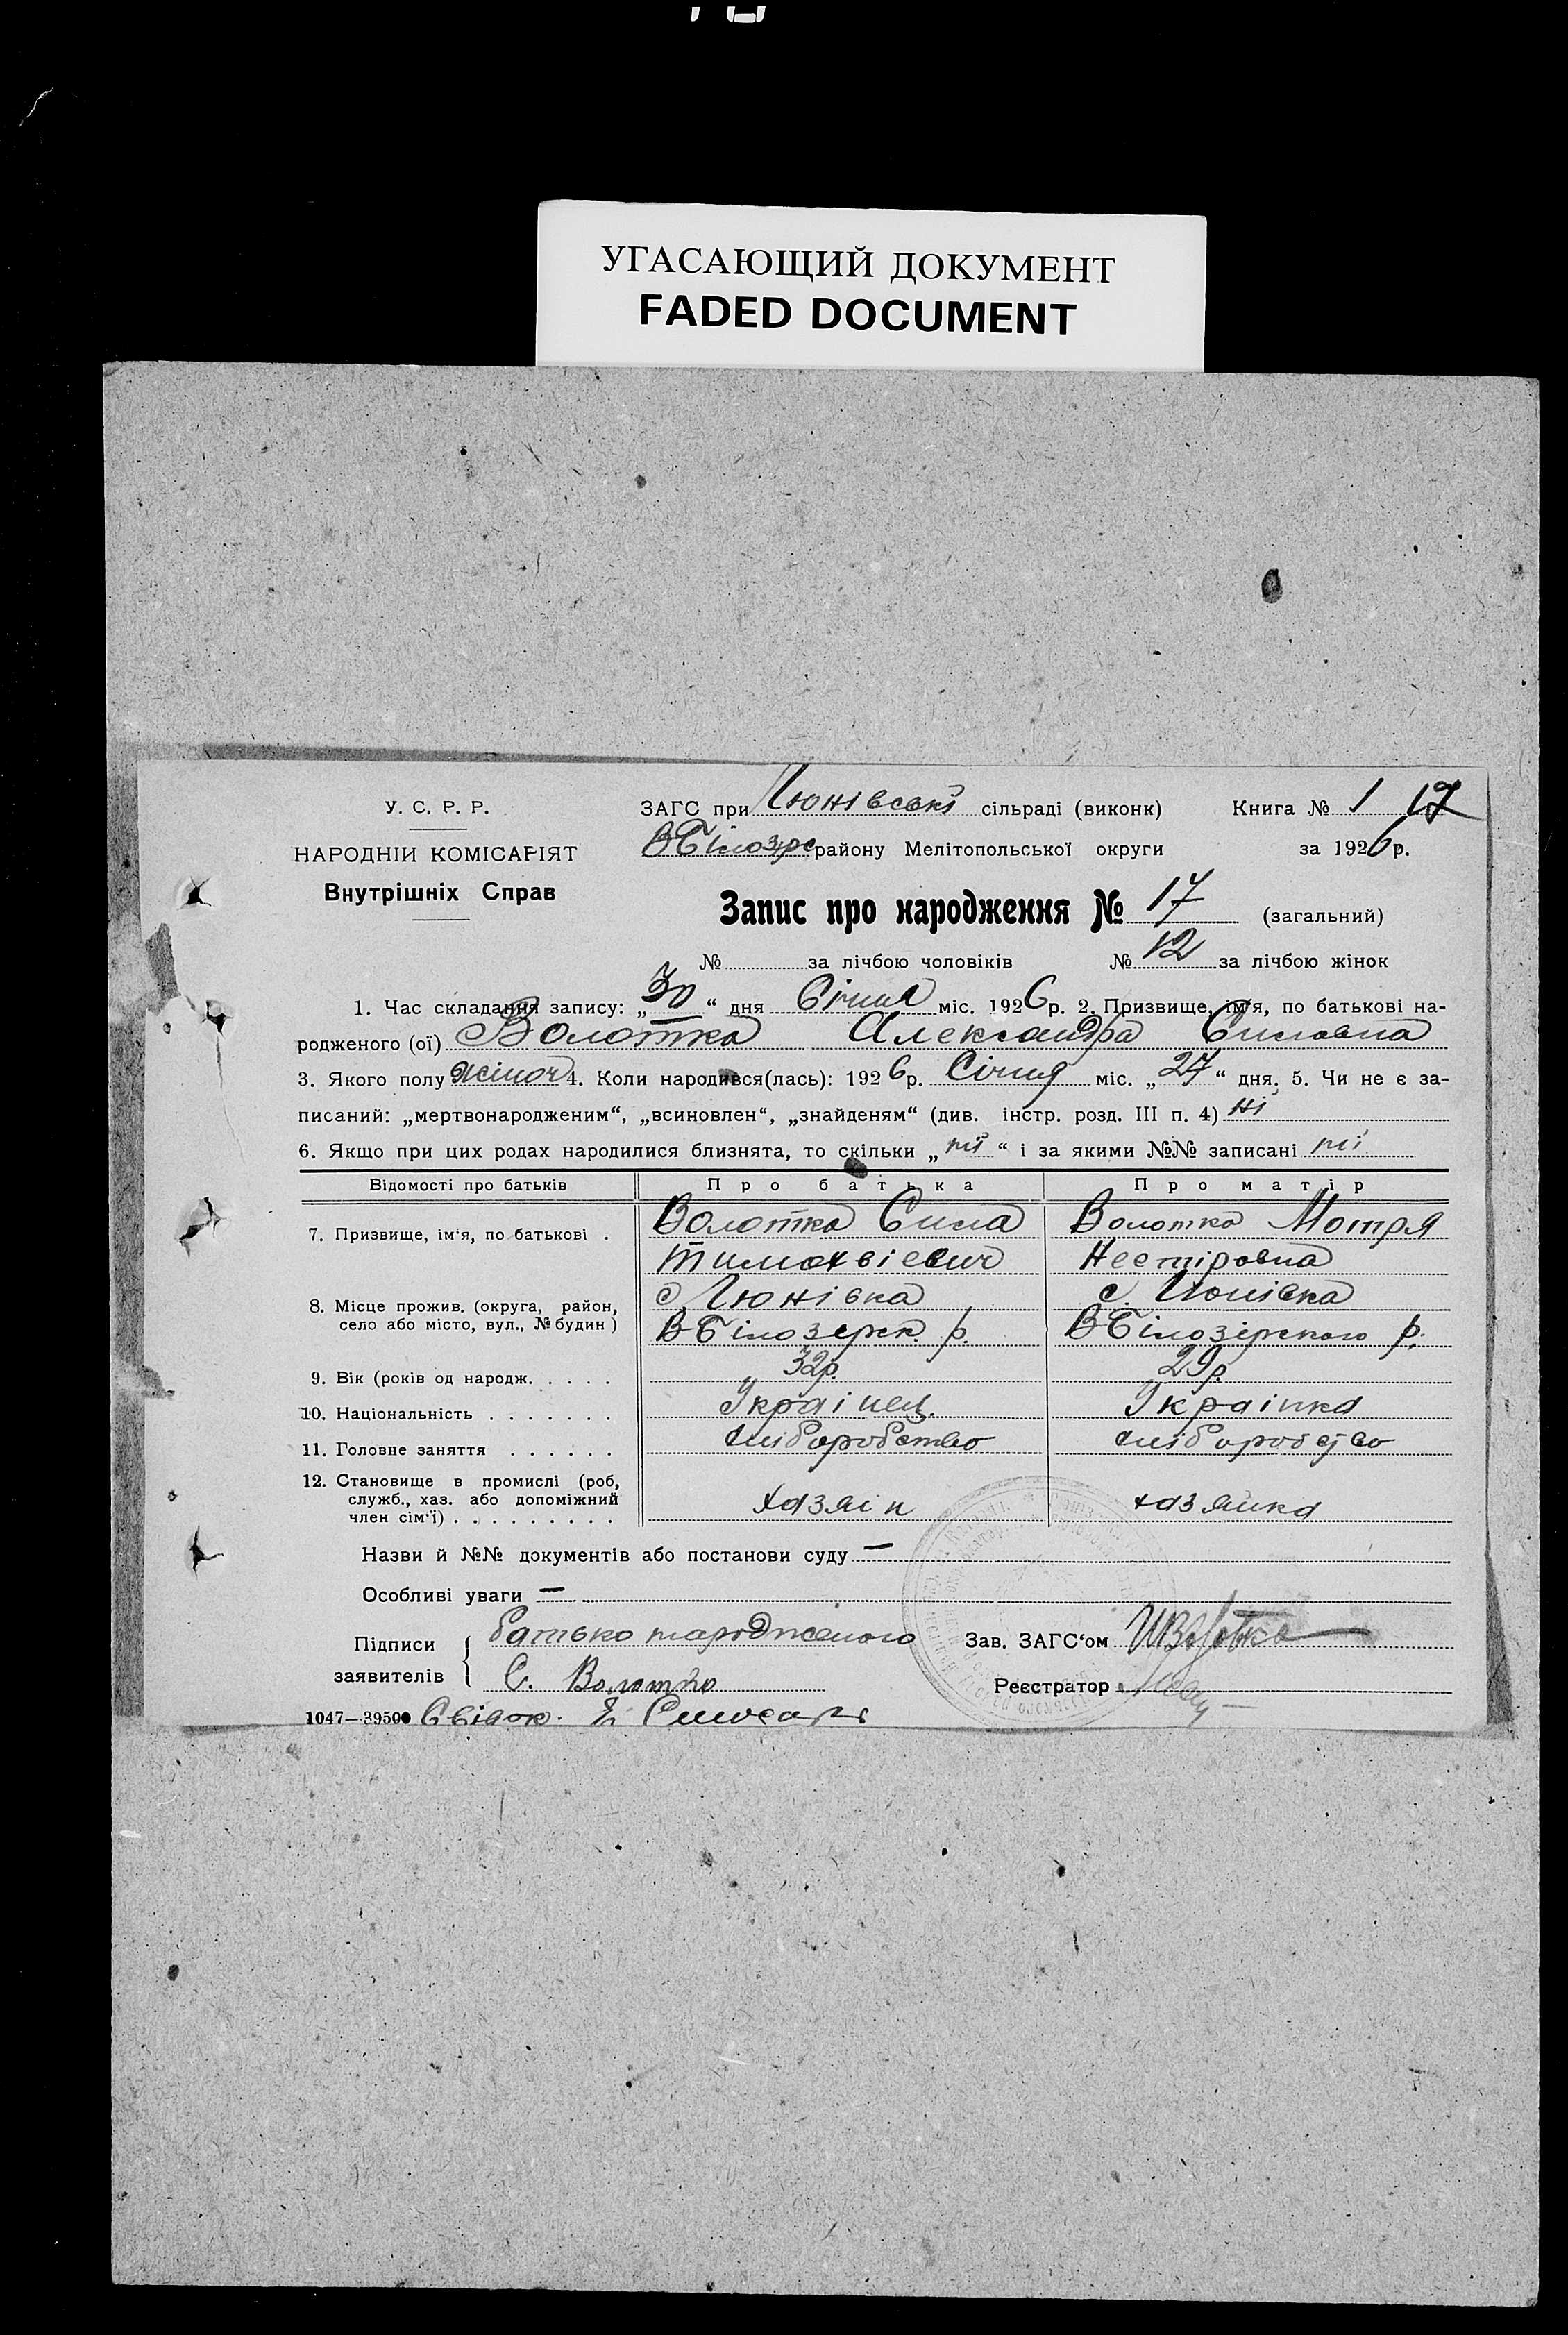 УГАСАЮЩИЙ ДОКУМЕНТ
FADED DOCUMENT
У. С. Р. Р.
НАРОДНІЙ КОМІСАРІЯТ
Внутрішніх Справ
ЗАГС при Цюнівські сільраді (виконк) Книга № 1 17
ВБілозерс району Мелітопольської округи за 1926 р.
Запис про народження № 17 (загальний)
№ за лічбою чоловіків № 12 за лічбою жінок
1. Час складання запису: „30“ дня Січня міс. 1926 р. 2. Призвище, ім'я, по батькові на-
родженого (ої) Волотка Александра Силовна
3. Якого полу жіноч 4. Коли народився(лась): 1926 р. Січня міс. „27“ дня. 5. Чи не є за-
писаний: „мертвонародженим“, „всиновлен“, „знайденям“ (див. інстр. розд. III п. 4) ні
6. Якщо при цих родах народилися близнята, то скільки „ні“ і за якими №№ записані ні
Відомості про батьків Про батька Про матір
7. Призвище, ім'я, по батькові . Волотка Сила Волотка Мотря
Тимохвіевич Нестіровна
8. Місце прожив. (округа, район, село або місто, вул., № будин) с. Цюнівка с. Цюнівка
ВБілозерск. р. ВБілозірского р.
9. Вік (років од народж. . . . . 32р. 29р.
10. Національність . . . . . . . Українец. Українка
11. Головне заняття . . . . . . хліборобство хліборобство
12. Становище в промислі (роб, служб., хаз. або допоміжний член сім'ї) . . . . . . . . . хазяін хазяйка
Назви й №№ документів або постанови суду —
Особливі уваги —
Підписи заявителів батько народженого
С. Волотко
Зав. ЗАГС'ом
Реєстратор
1047—39500 Свідок.